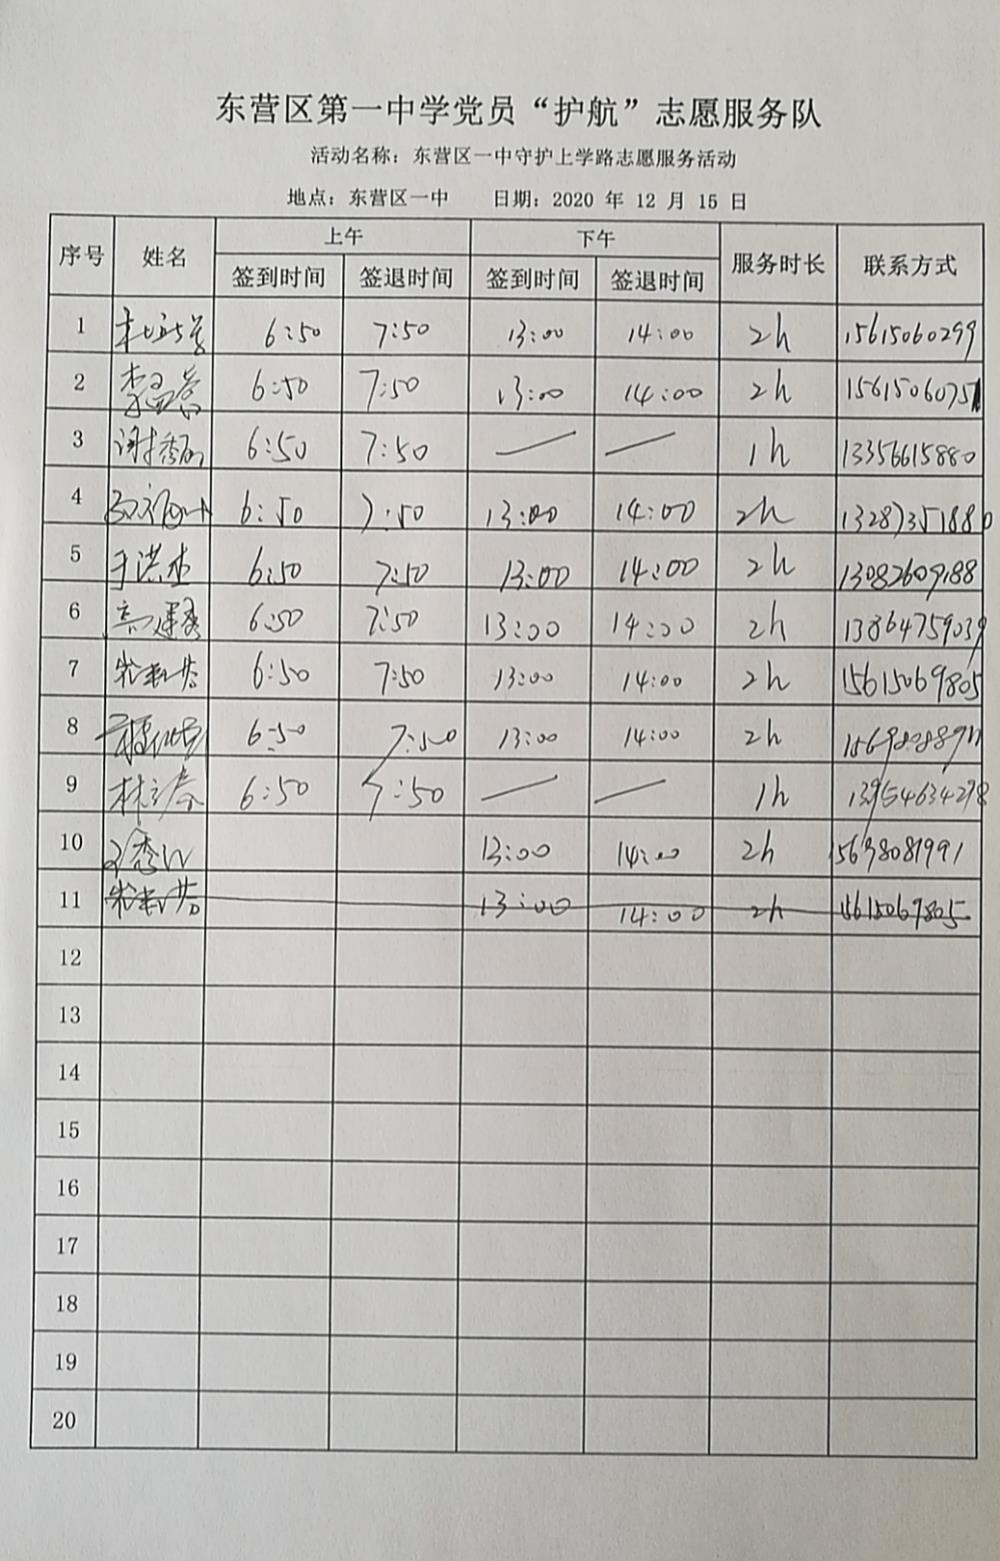 东营区第一中学党员“护航”志愿服务队
活动名称：东营区一中守护上学路志愿服务活动
地点：东营区一中 日期：2020 年 12 月 15 日
序号 姓名 上午 下午 服务时长 联系方式
签到时间 签退时间 签到时间 签退时间
1 6:50 7:50 13:00 14:00 2h 15615060299
2 6:50 7:50 13:00 14:00 2h
3 6:50 7:50 — — 1h 13356615880
4 6:50 7:50 13:00 14:00 2h 13287351880
5 于洪杰 6:50 7:50 13:00 14:00 2h 13082609188
6 6:50 7:50 13:00 14:00 2h 13864759039
7 6:50 7:50 13:00 14:00 2h 15615069805
8 6:50 7:50 13:00 14:00 2h
9 6:50 7:50 — — 1h 13954634278
10 13:00 14:00 2h
11 13:00 14:00 2h 15615069805
12
13
14
15
16
17
18
19
20